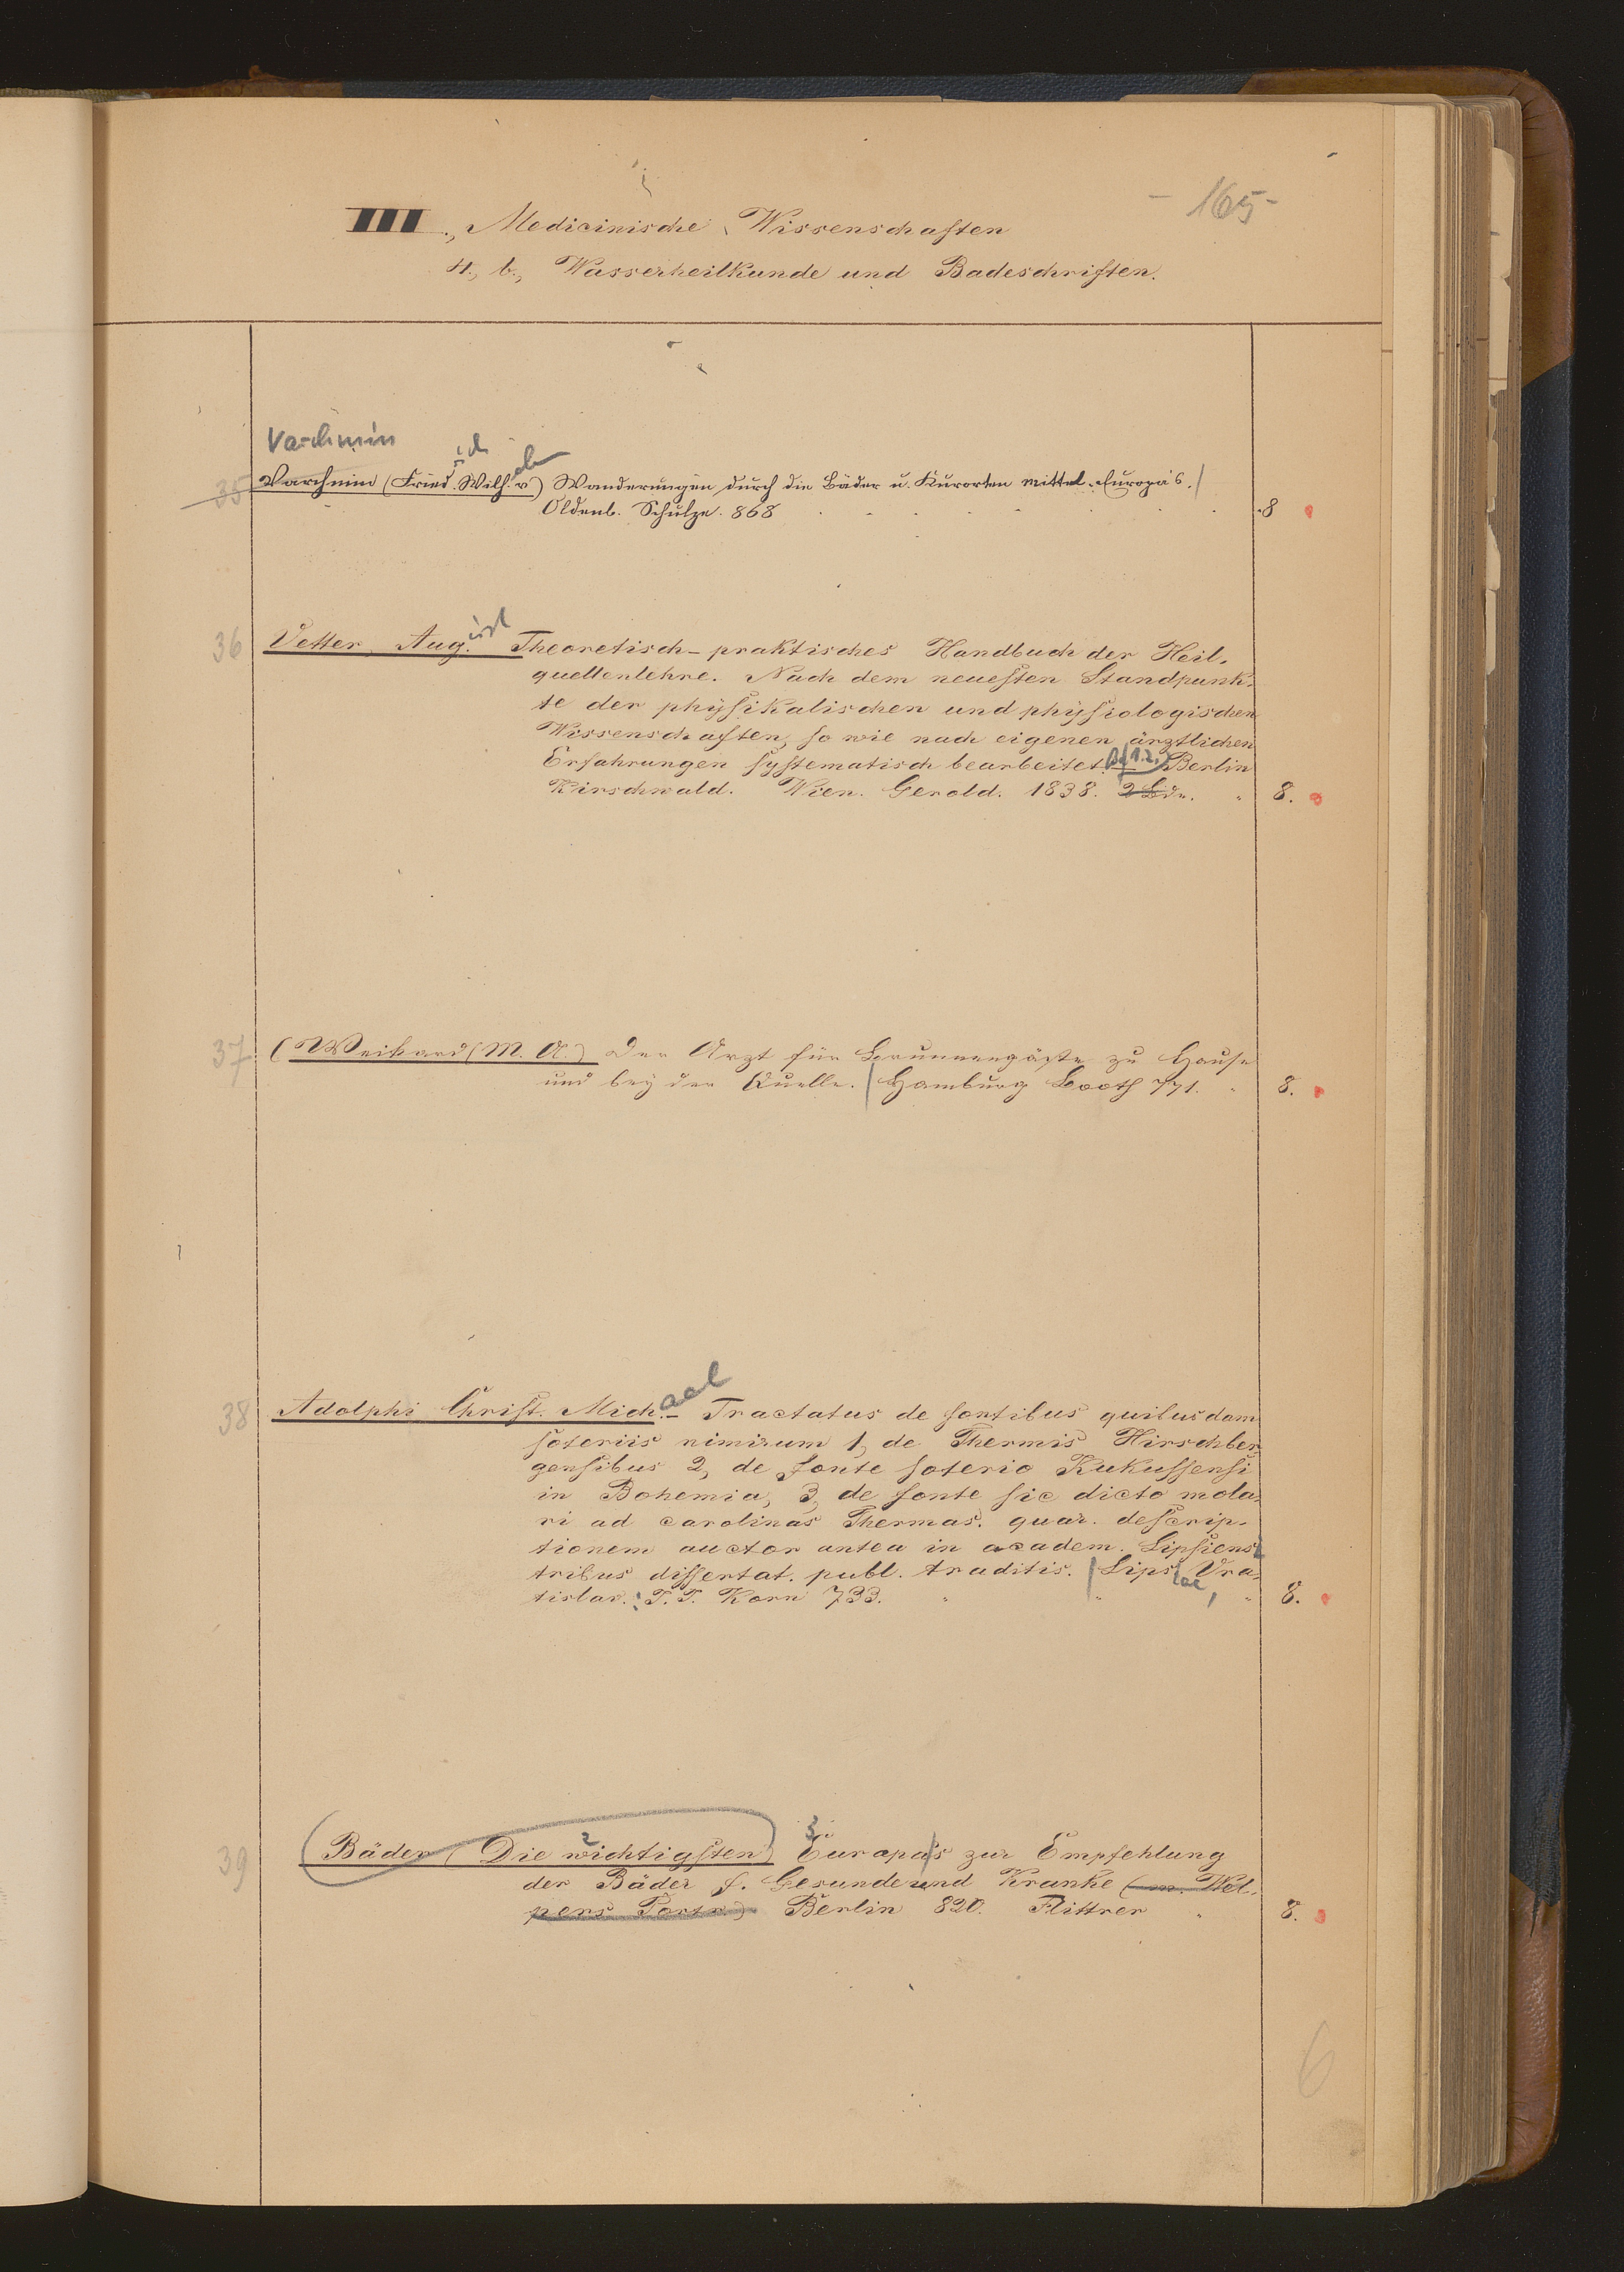 - 165 -
III., Medicinische Wissenschaften
4., b., Wasserheilkunde und Badeschriften.
Varchmin
35 Varchmin (Fried. Wilh. v) Wanderungen durch die Bäder u. Kurorten mittel-Europa's.
Oldenb. Schulze. 868 8
36 Vetter, Aug.ust Theoretisch-praktisches Handbuch der Heil-
quellenlehre. Nach dem neuesten Standpunk-
te der physikalischen und physiologischen
Wissenschaften, so wie nach eigenen ärztlichen
Erfahrungen systematisch bearbeitet. Bd 1.2. Berlin
Hirschwald. Wien. Gerold. 1838. 2 Bde. 8.
37 (Weikard (M. A.) Der Arzt für Brunnengäste zu Hause
und bey der Quelle. Hamburg Booth 771. 8.
38 Adolphi Christ. Mich.ael - Tractatus de fontibus quibusdam
soteriis nimirum 1, de Thermis Hirschber-
gensibus 2, de fonte soterio Kukussensi
in Bohemia, 3, de fonte sic dicto mola-
ri ad carolinas Thermas. quar. descrip-
tionem auctor antea in academ. Lipsiens
tribus dissertat. publ. traditis. Lipsiae, Vra-
tislav.: T. T. Korn 733. 8.
39 Bäder (Die wichtigsten) Europa's zur Empfehlung
2 3
der Bäder f. Gesunde und Kranke (m. Wel-
pers Portr.) Berlin 820. Flittner 8.
6